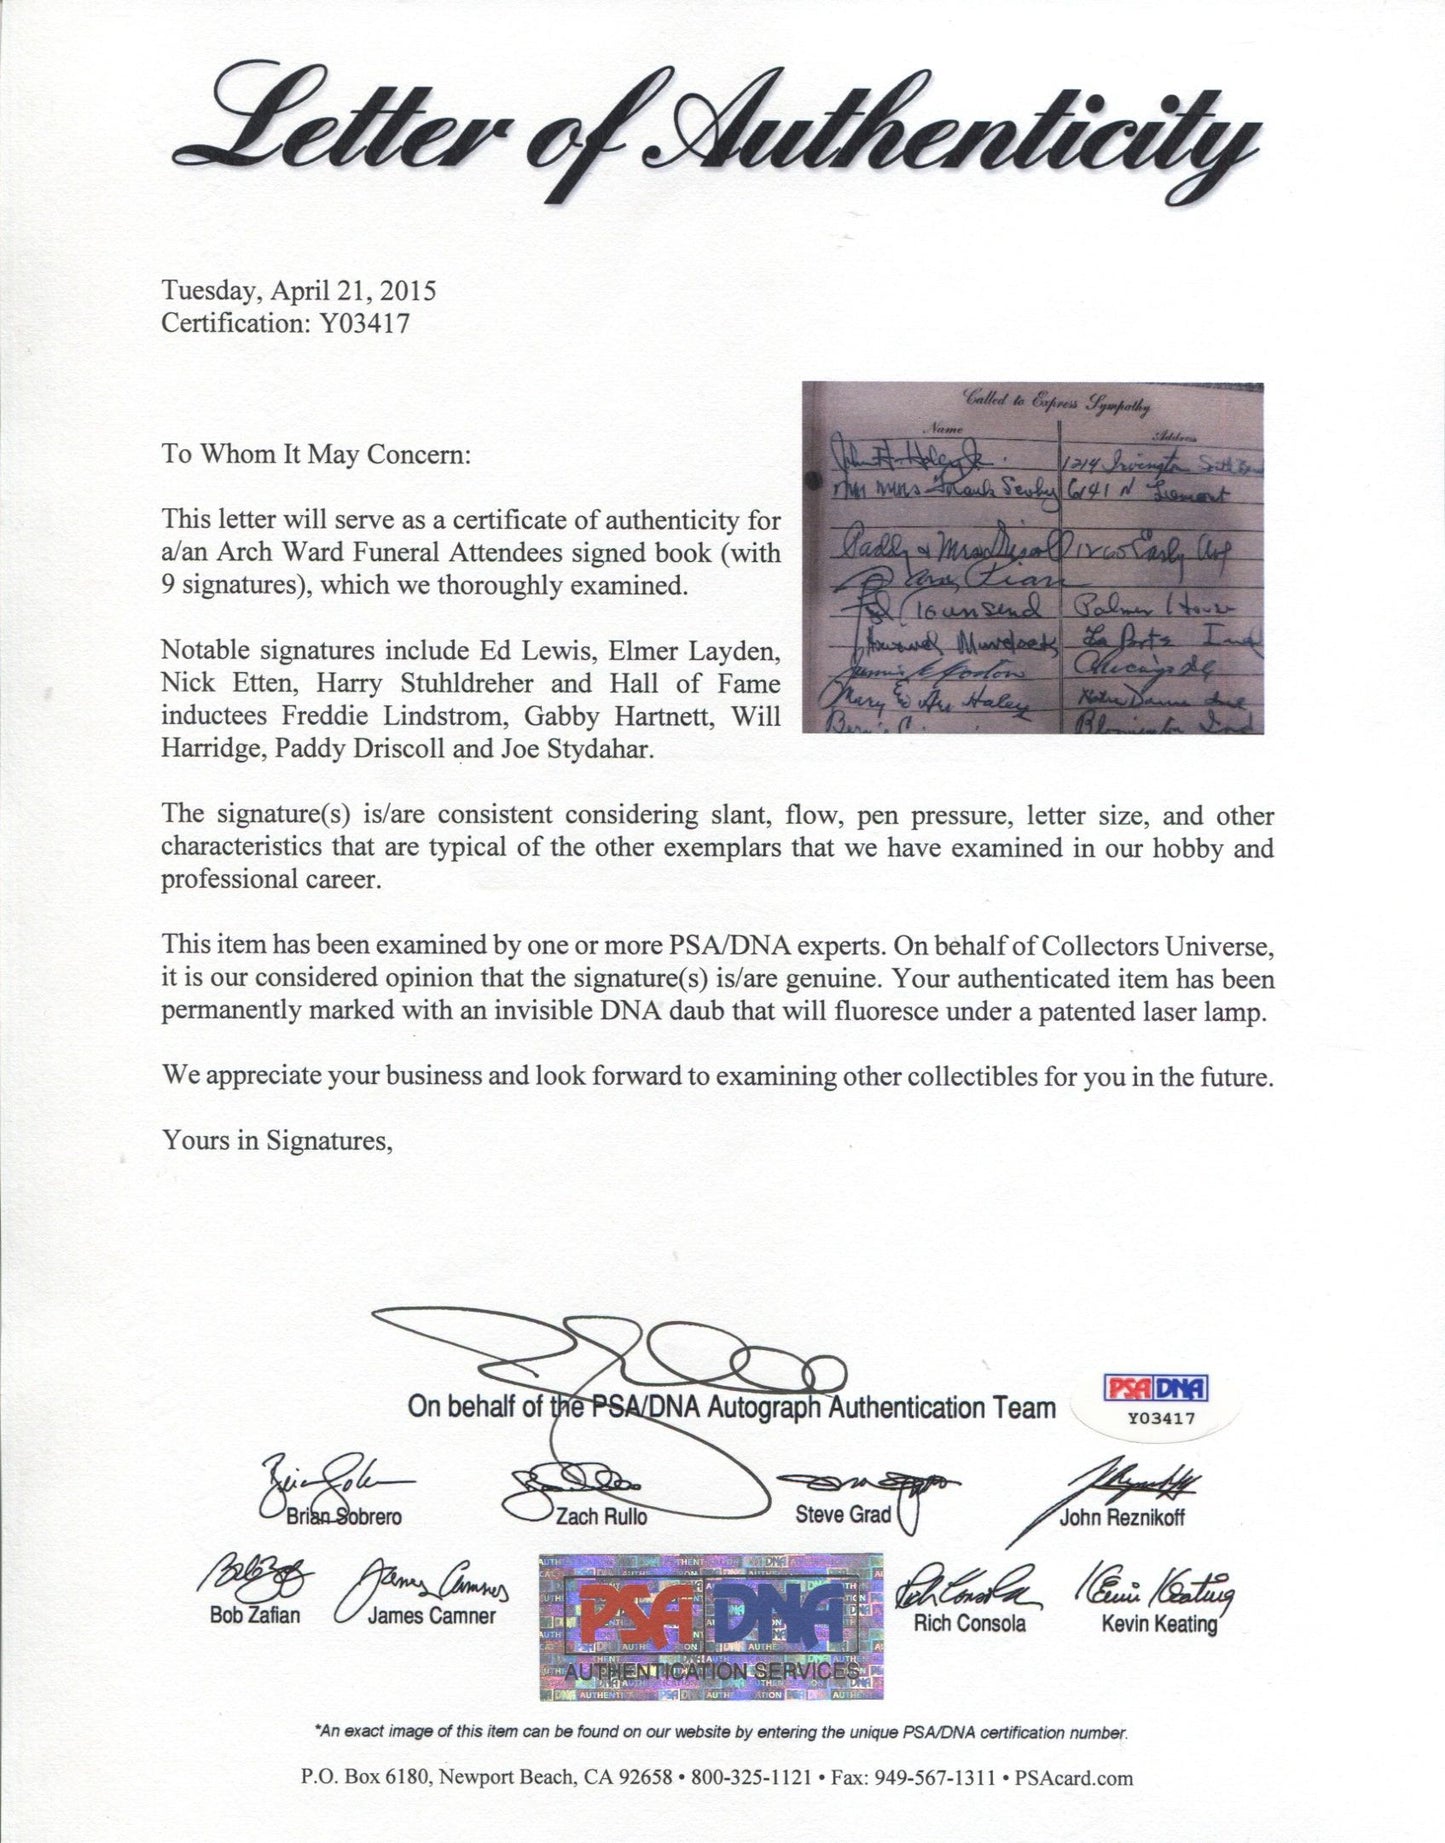 Letter of Authenticity
Tuesday, April 21, 2015
Certification: Y03417
To Whom It May Concern:
This letter will serve as a certificate of authenticity for
a/an Arch Ward Funeral Attendees signed book (with
9 signatures), which we thoroughly examined.
Notable signatures include Ed Lewis, Elmer Layden,
Nick Etten, Harry Stuhldreher and Hall of Fame
inductees Freddie Lindstrom, Gabby Hartnett, Will
Harridge, Paddy Driscoll and Joe Stydahar.
Called to Express Sympathy
Name Address
John H. 1214 Irvington South
Frank 6141 N
Paddy & Mrs Driscoll 1260 Early Ave
Townsend Palmer House
Howard La Porte Ind
Chicago
Mary Haley Notre Dame Ind
Bloomington Ind
The signature(s) is/are consistent considering slant, flow, pen pressure, letter size, and other
characteristics that are typical of the other exemplars that we have examined in our hobby and
professional career.
This item has been examined by one or more PSA/DNA experts. On behalf of Collectors Universe,
it is our considered opinion that the signature(s) is/are genuine. Your authenticated item has been
permanently marked with an invisible DNA daub that will fluoresce under a patented laser lamp.
We appreciate your business and look forward to examining other collectibles for you in the future.
Yours in Signatures,
On behalf of the PSA/DNA Autograph Authentication Team
PSA DNA
Y03417
Brian Sobrero Zach Rullo Steve Grad John Reznikoff
Bob Zafian James Camner Rich Consola Kevin Keating
PSA DNA
AUTHENTICATION SERVICES
*An exact image of this item can be found on our website by entering the unique PSA/DNA certification number.
P.O. Box 6180, Newport Beach, CA 92658 • 800-325-1121 • Fax: 949-567-1311 • PSAcard.com